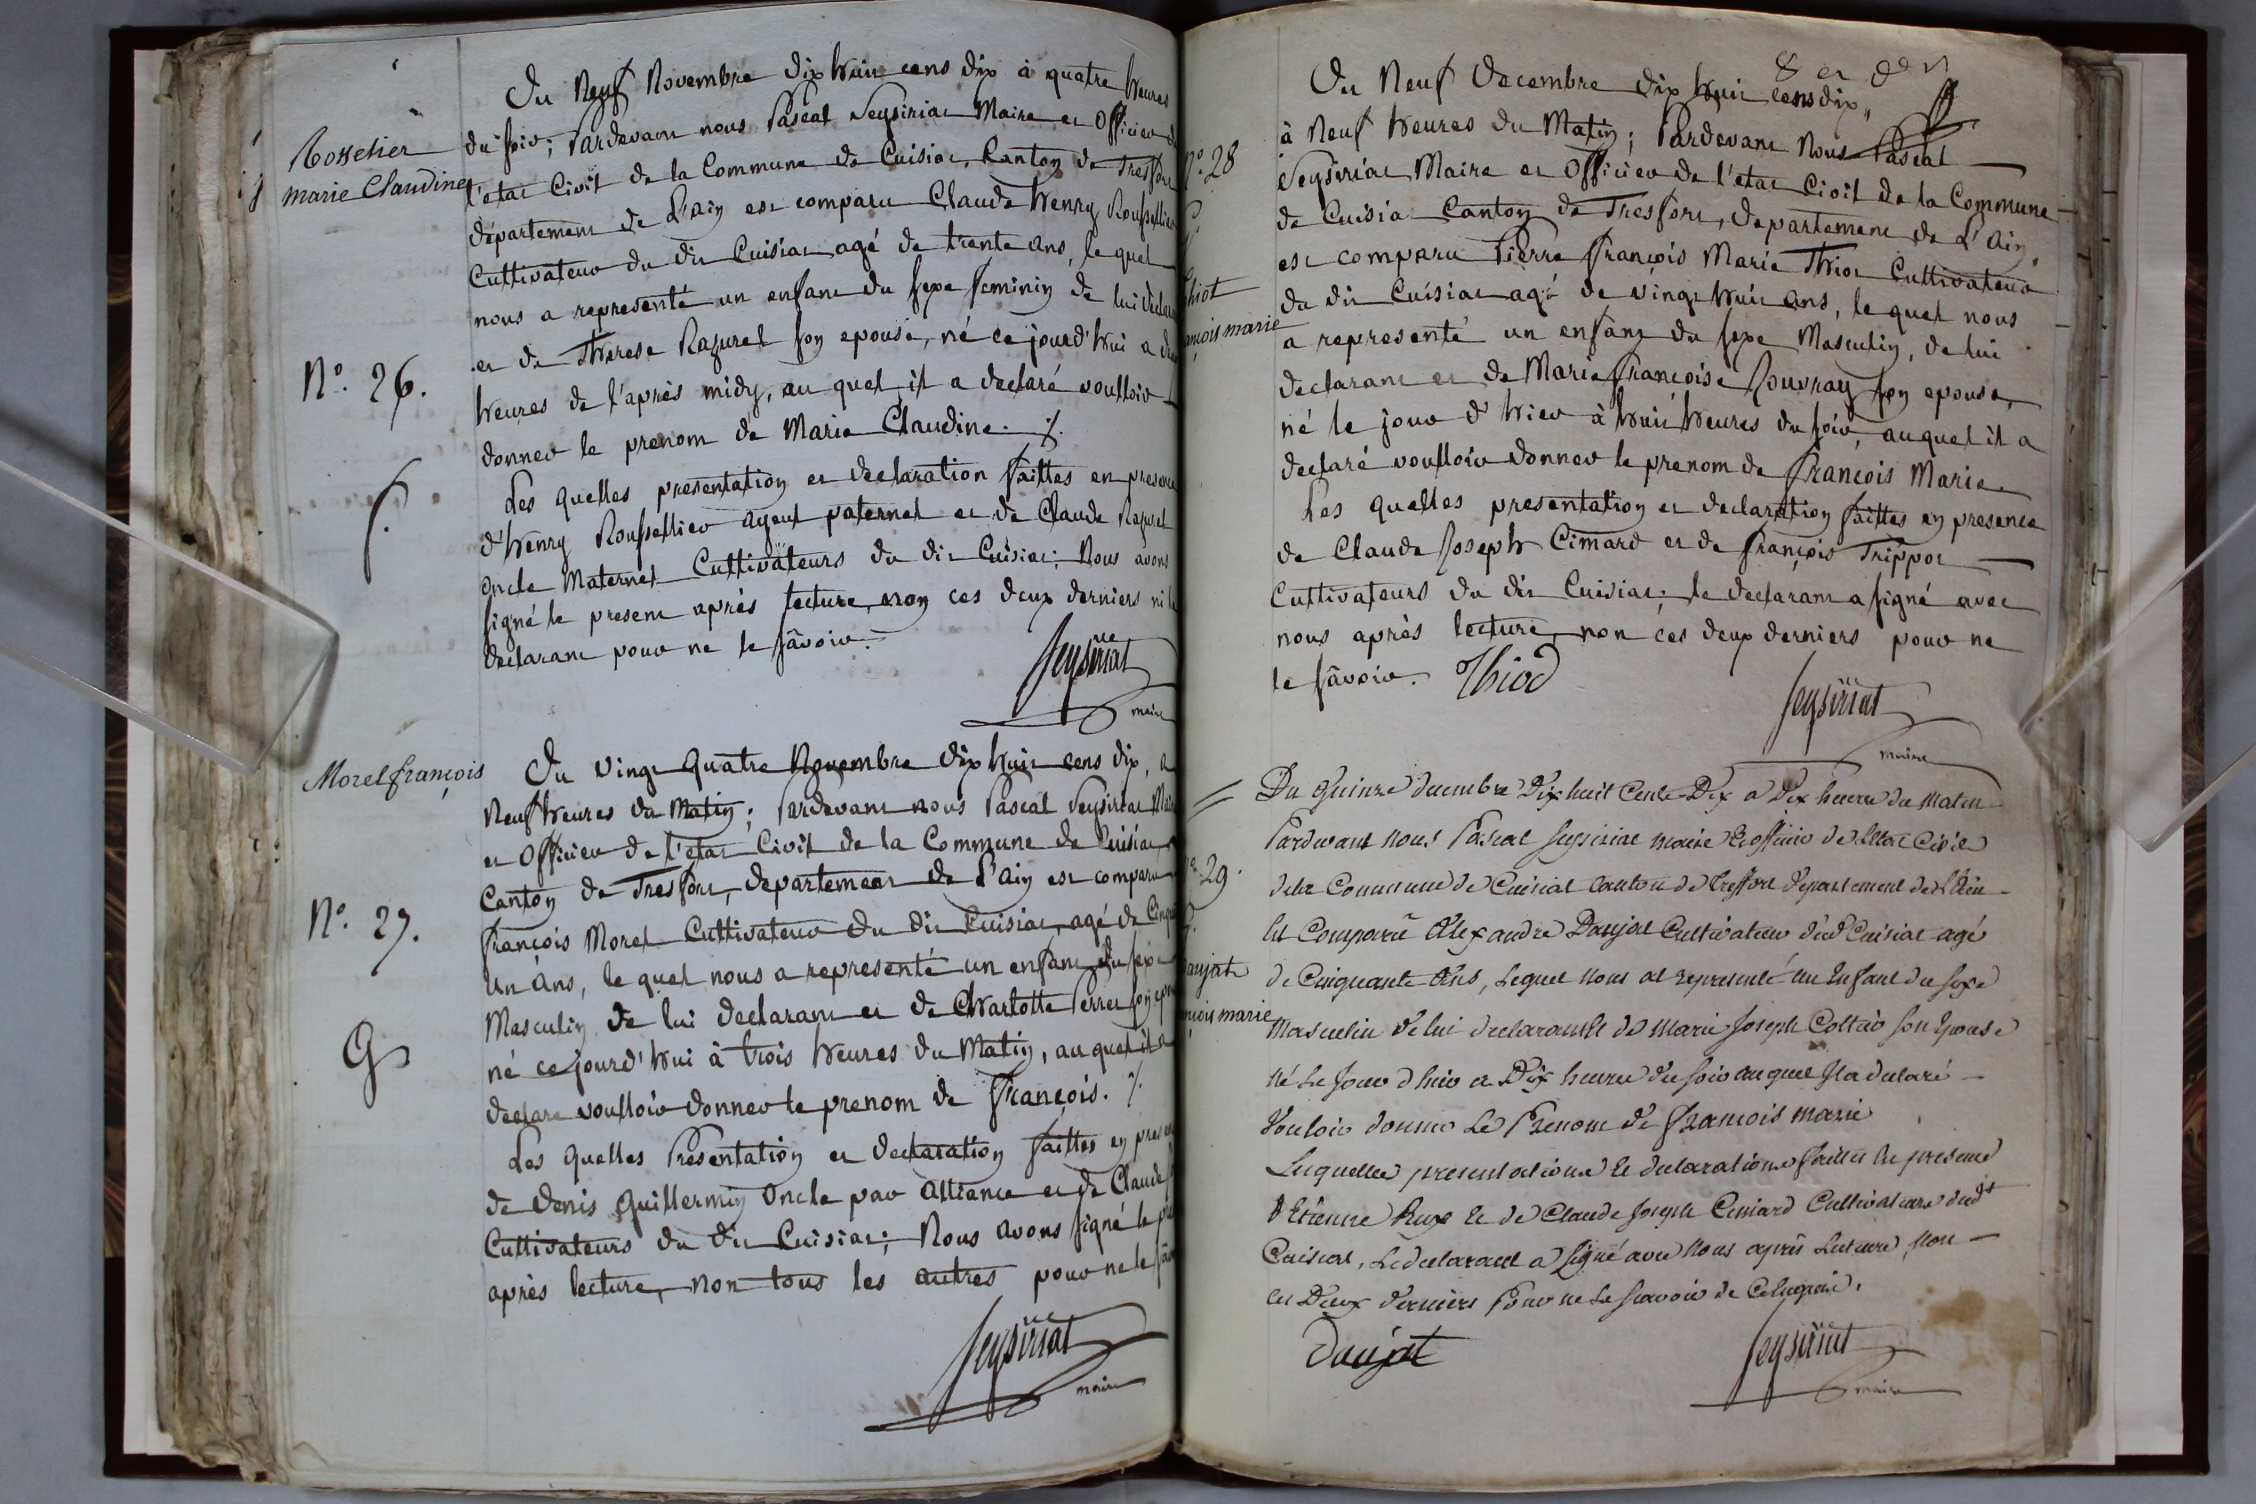 Rosselier
marie Claudine
Nº. 26.
f.
Du Neuf Novembre dix huit cens dix à quatre heures
du soir; Pardevant nous Pascal Seysiriat Maire et Officier
l'etat Civil de la Commune de Cuisiat, Canton de Tresfort
département de L'ain est comparu Claude henry Roussellier
Cultivateur du dit Cuisiat agé de trente ans, le quel
nous a representé un enfant du sexe feminin de lui
et de Therese Razurel son epouse, né ce jourd'hui a
heures de l'après midy, au quel il a declaré voulloir
donner le prenom de Marie Claudine. %.
Les quelles presentation et declaration faittes en presence
d'henry Roussellier ayeul paternel et de Claude Razurel
oncle Maternel Cultivateurs du dit Cuisiat; Nous avons
signé le present après lecture, non ces deux derniers ni le
declarant pour ne le sâvoir.
Seysiriat
maire
Morel françois
Nº. 27.
G
Du vingt quatre Novembre dix huit cens dix, a
Neuf heures du Matin; Pardevant nous Pascal Seysiriat
et Officier de l'etat Civil de la Commune de Cuisiat
Canton de Tresfort, departement de L'ain est comparu
françois Morel Cultivateur du dit Cuisiat, agé de
un ans, le quel nous a representé un enfant du sexe
Masculin de lui declarant et de Charlotte Perret son
né ce jourd'hui à trois heures du Matin, au quel il a
declaré voulloir donner le prenom de françois. %.
Les quelles Presentation et declaration faittes en
de denis Guillermin Oncle par alliance et de Claude
Cultivateurs du dit Cuisiat; Nous avons signé le
après lecture, non tous les autres pour ne le
Seysiriat
maire
Nº. 28
Thiot
marie
Du Neuf decembre dix huit cens dix
à Neuf heures du Matin; Pardevant Nous Pascal
Seysiriat Maire et Officier de l'etat Civil de la Commune
de Cuisiat Canton de Tresfort, departement de L'ain.
est comparu Pierre françois Marie Thiot Cultivateur
du dit Cuisiat agé de vingt huit ans, le quel nous
a representé un enfant du sexe Masculin, de lui
declarant et de Marie françoise Rouvray son epouse,
né le jour d'hier à huit heures du soir, auquel il a
declaré voulloir donner le prenom de françois Marie.
Les quelles presentation et declaration faittes en presence
de Claude Joseph Cimard et de françois Trippoz
Cultivateurs du dit Cuisiat; le declarant a signé avec
nous après lecture, non ces deux derniers pour ne
le sâvoir. Thiod
Seysiriat
maire
29.
marie
Du Quinze decembre Dix huit Cents Dix a Dix heure du Matin
Pardevant nous Pascal Seysiriat maire et officier de Letat Civil
dela Commune de Cuisiat canton de treffort departement de L'Ain
Est Comparu Alexandre Daujat Cultivateur dud Cuisiat agé
de Cinquante Ans, Lequel nous at representé un Enfant du sexe
Masculin de lui declarant Et de Marie Joseph Coltaÿ son Epouse
né Le Jour d'hier a Dix heure du soir auquel Il a declaré
vouloir donner Le Prenom de françois marie
Lesquelles presentations et declarations faittes En presence
d'Etienne Ruzé Et de Claude Joseph Cimard Cultivateurs dudt
Cuisiat, Le declarant a signé avec Nous après Lecture, non
ces Deux derniers Pour ne Le scavoir de Ce Enquis.
Daujat
Seysiriat
maire